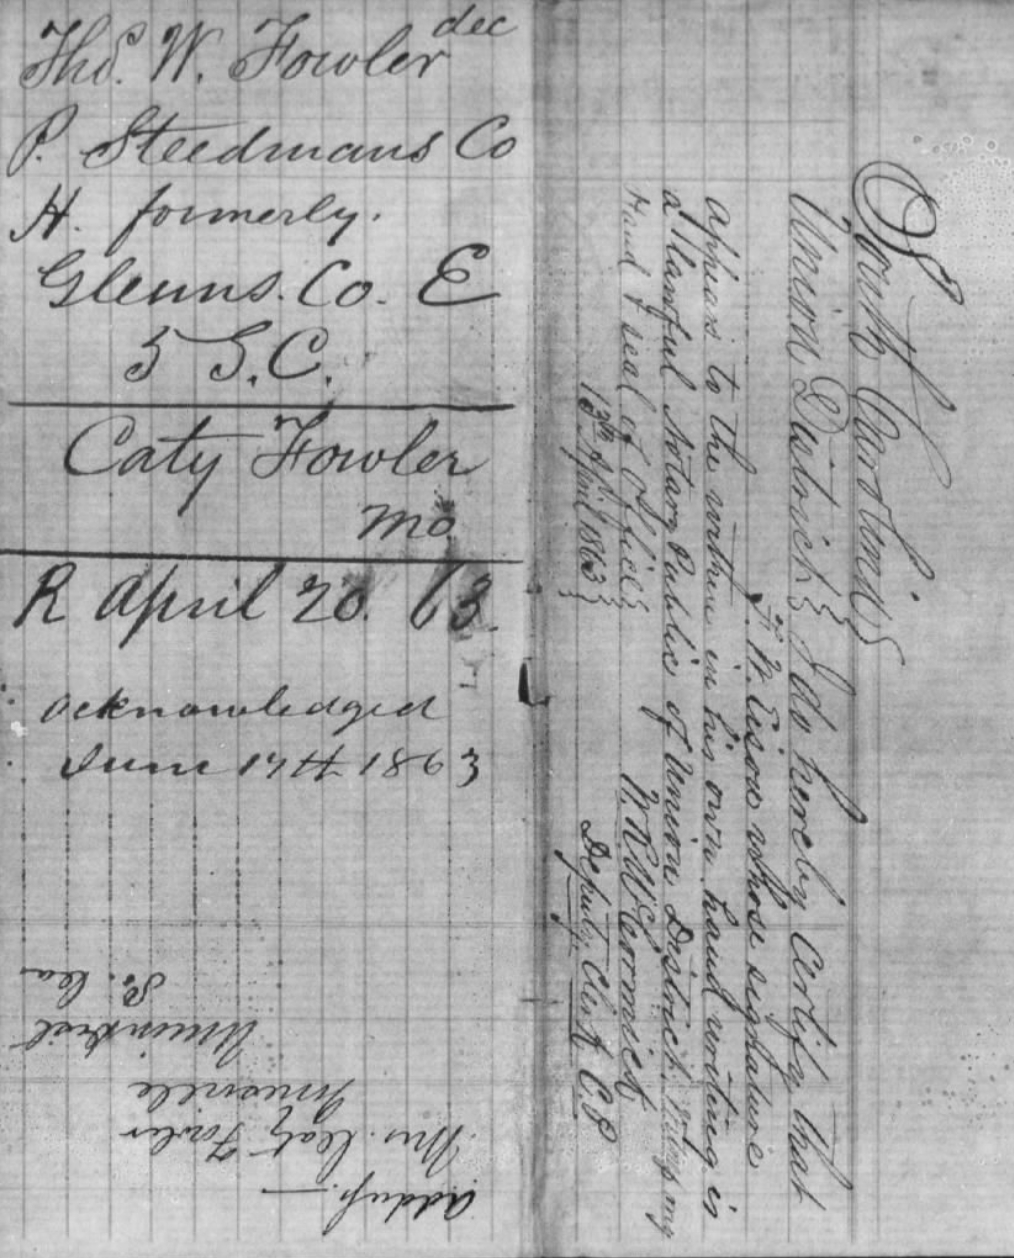 Tho. W. Fowler dec
P. Steedmans Co
H. formerly.
Glenns. Co. E
5 S.C.
Caty Fowler
Mo
R April 20. 63.
acknowledged
June 14th 1863
Address
Mrs. Caty Fowler
Union Dist
So. Ca
South Carolina }
Union District } I do hereby Certify that
whose signature
appears to the within in his own hand writing is
a Lawful Notary Public of Union District. my
Hand & seal of Office }
13th April 1863 }
McCormick
Deputy Clerk C. P